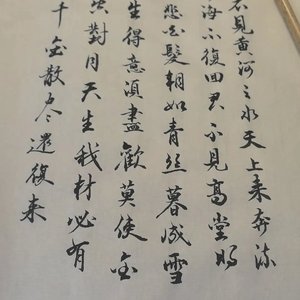 不見黃河之水天上来奔流
海不復回君不見高堂明
悲白髮朝如青丝暮成雪
生得意須盡歡莫使金
空對月天生我材必有
千金散尽還復来